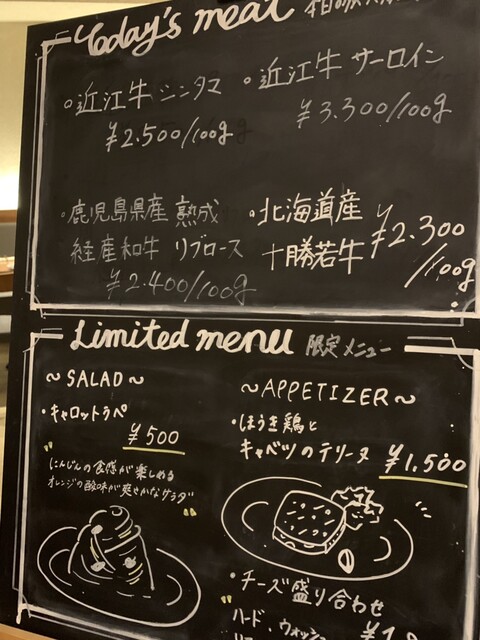 Today's meat
近江牛シンタマ
¥2.500/100g
近江牛 サーロイン
¥3.300/100g
鹿児島県産 熟成
経産和牛 リブロース
¥2.400/100g
北海道産
十勝若牛
¥2.300
/100g
Limited menu 限定メニュー
~SALAD~
・キャロットラペ
¥500
"にんじんの食感が楽しめる
オレンジの酸味が爽やかなサラダ"
~APPETIZER~
・ほうき鶏と
キャベツのテリーヌ
¥1,500
・チーズ盛り合わせ
ハード、ウォッシュ